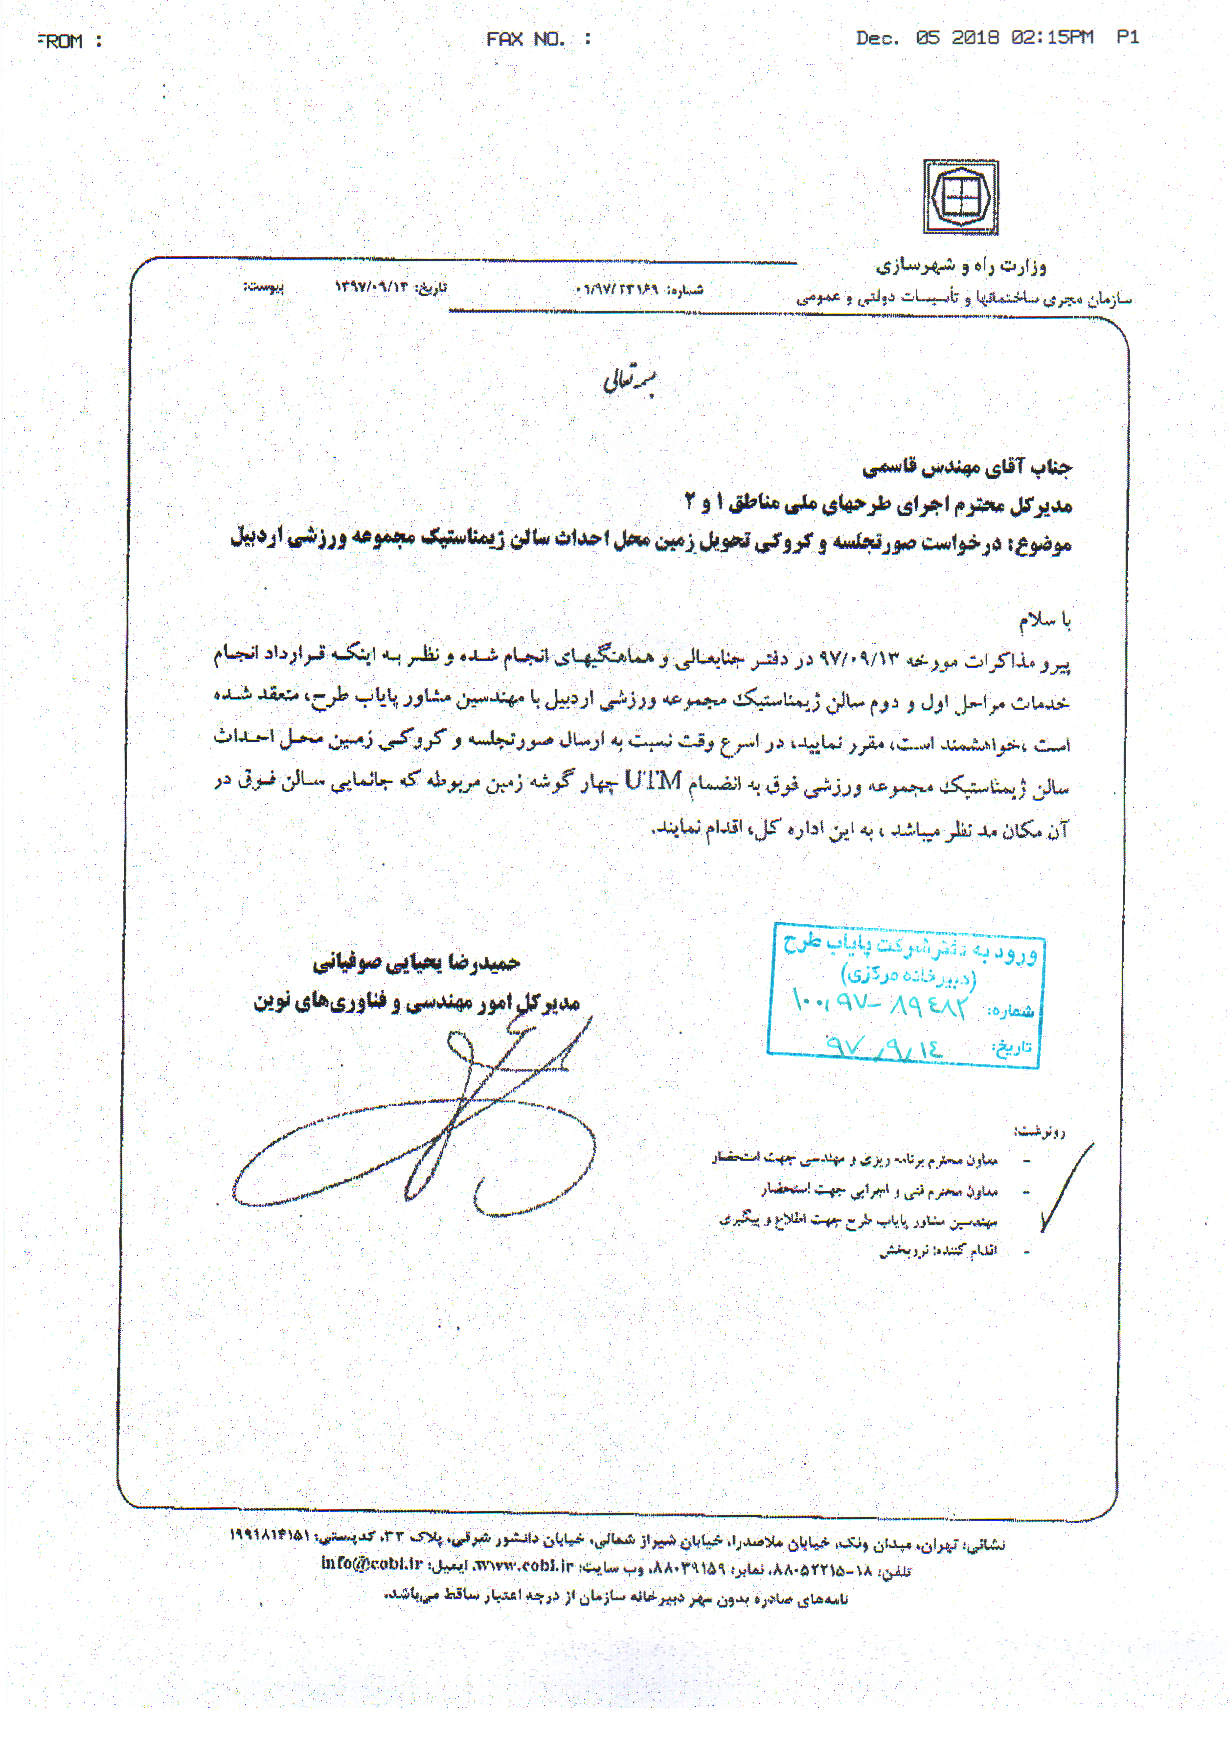 FROM :
FAX NO. :
Dec. 05 2018 02:15PM P1
وزارت راه و شهرسازی
سازمان مجری ساختمانها و تأسیسات دولتی و عمومی
شماره: ۰۶/۹۷/۲۳۱۶۹
تاریخ: ۱۳۹۷/۰۹/۱۳
پیوست:
بسمه تعالی
جناب آقای مهندس قاسمی
مدیرکل محترم اجرای طرحهای ملی مناطق ۱ و ۲
موضوع: درخواست صورتجلسه و کروکی تحویل زمین محل احداث سالن ژیمناستیک مجموعه ورزشی اردبیل
با سلام
پیرو مذاکرات مورخه ۹۷/۰۹/۱۳ در دفتر جنابعالی و هماهنگیهای انجام شده و نظر به اینکه قرارداد انجام
خدمات مراحل اول و دوم سالن ژیمناستیک مجموعه ورزشی اردبیل با مهندسین مشاور پایاب طرح، منعقد شده
است ،خواهشمند است، مقرر نمایید، در اسرع وقت نسبت به ارسال صورتجلسه و کروکی زمین محل احداث
سالن ژیمناستیک مجموعه ورزشی فوق به انضمام UTM چهار گوشه زمین مربوطه که جانمایی سالن فوق در
آن مکان مد نظر میباشد ، به این اداره کل، اقدام نمایند.
حمیدرضا یحیایی صوفیانی
مدیرکل امور مهندسی و فناوری‌های نوین
ورود به دفتر شرکت پایاب طرح
(دبیرخانه مرکزی)
شماره: ۱۰۰,۹۷-۸۹۴۸۲
تاریخ: ۹۷,۹,۱۴
رونوشت:
- معاون محترم برنامه ریزی و مهندسی جهت استحضار
- معاون محترم فنی و اجرایی جهت استحضار
مهندسین مشاور پایاب طرح جهت اطلاع و پیگیری
- اقدام کننده: نوربخش
نشانی: تهران، میدان ونک، خیابان ملاصدرا، خیابان شیراز شمالی، خیابان دانشور شرقی، پلاک ۲۳، کدپستی: ۱۹۹۱۸۱۴۱۵۱
تلفن: ۱۸-۸۸۰۵۲۲۱۵، نمابر: ۸۸۰۳۹۱۵۹، وب سایت: www.cobi.ir، ایمیل: info@cobi.ir
نامه‌های صادره بدون مهر دبیرخانه سازمان از درجه اعتبار ساقط می‌باشد.